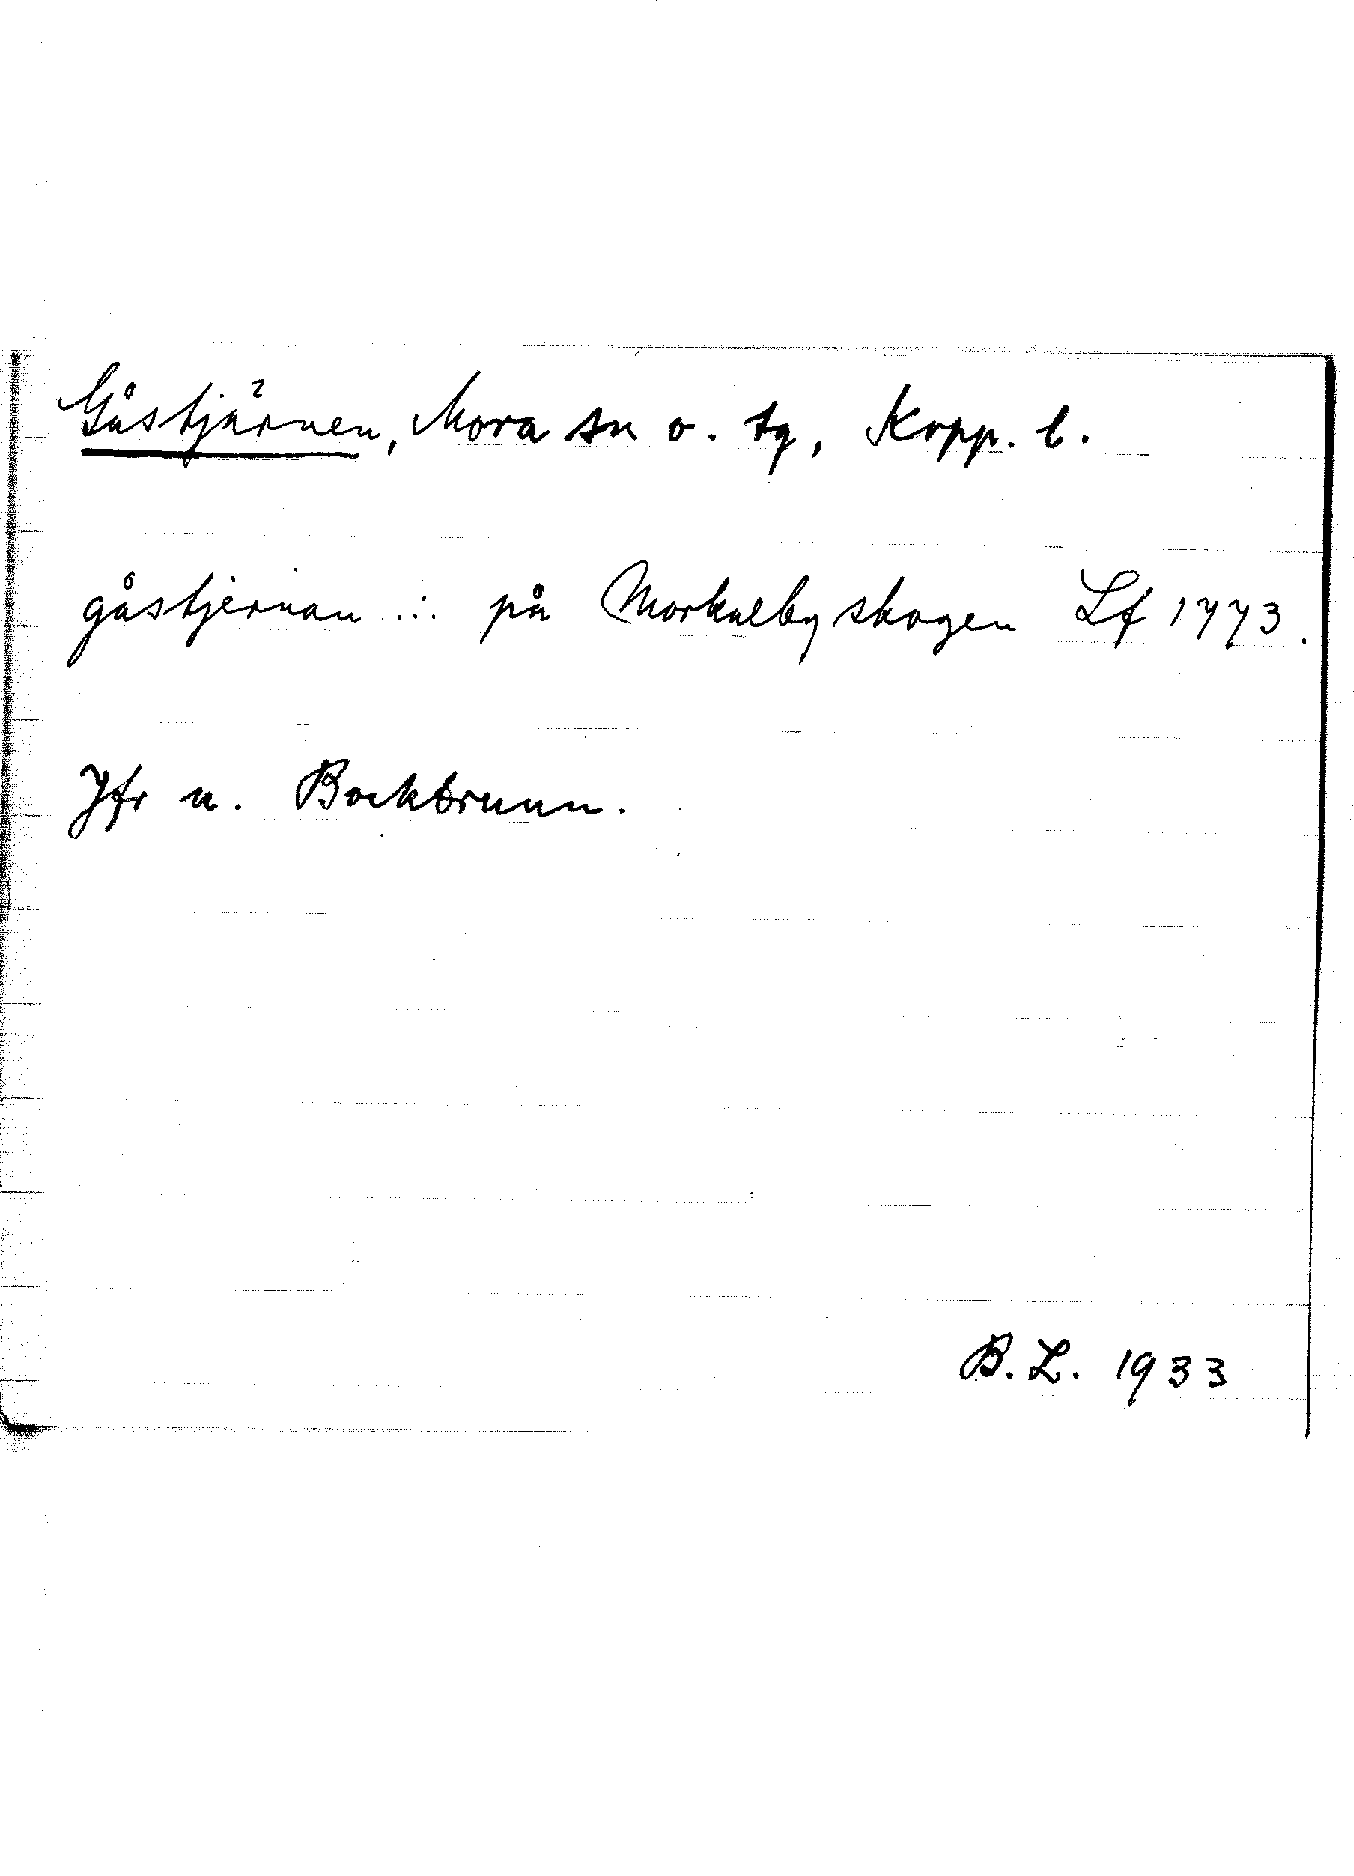 Gåstjärnen, Mora sn o. tg, Kopp. l.
gåstjernan ... på Morkalby skogen Lf 1773.
Jfr u. Bockbrunn.
B. L. 1933